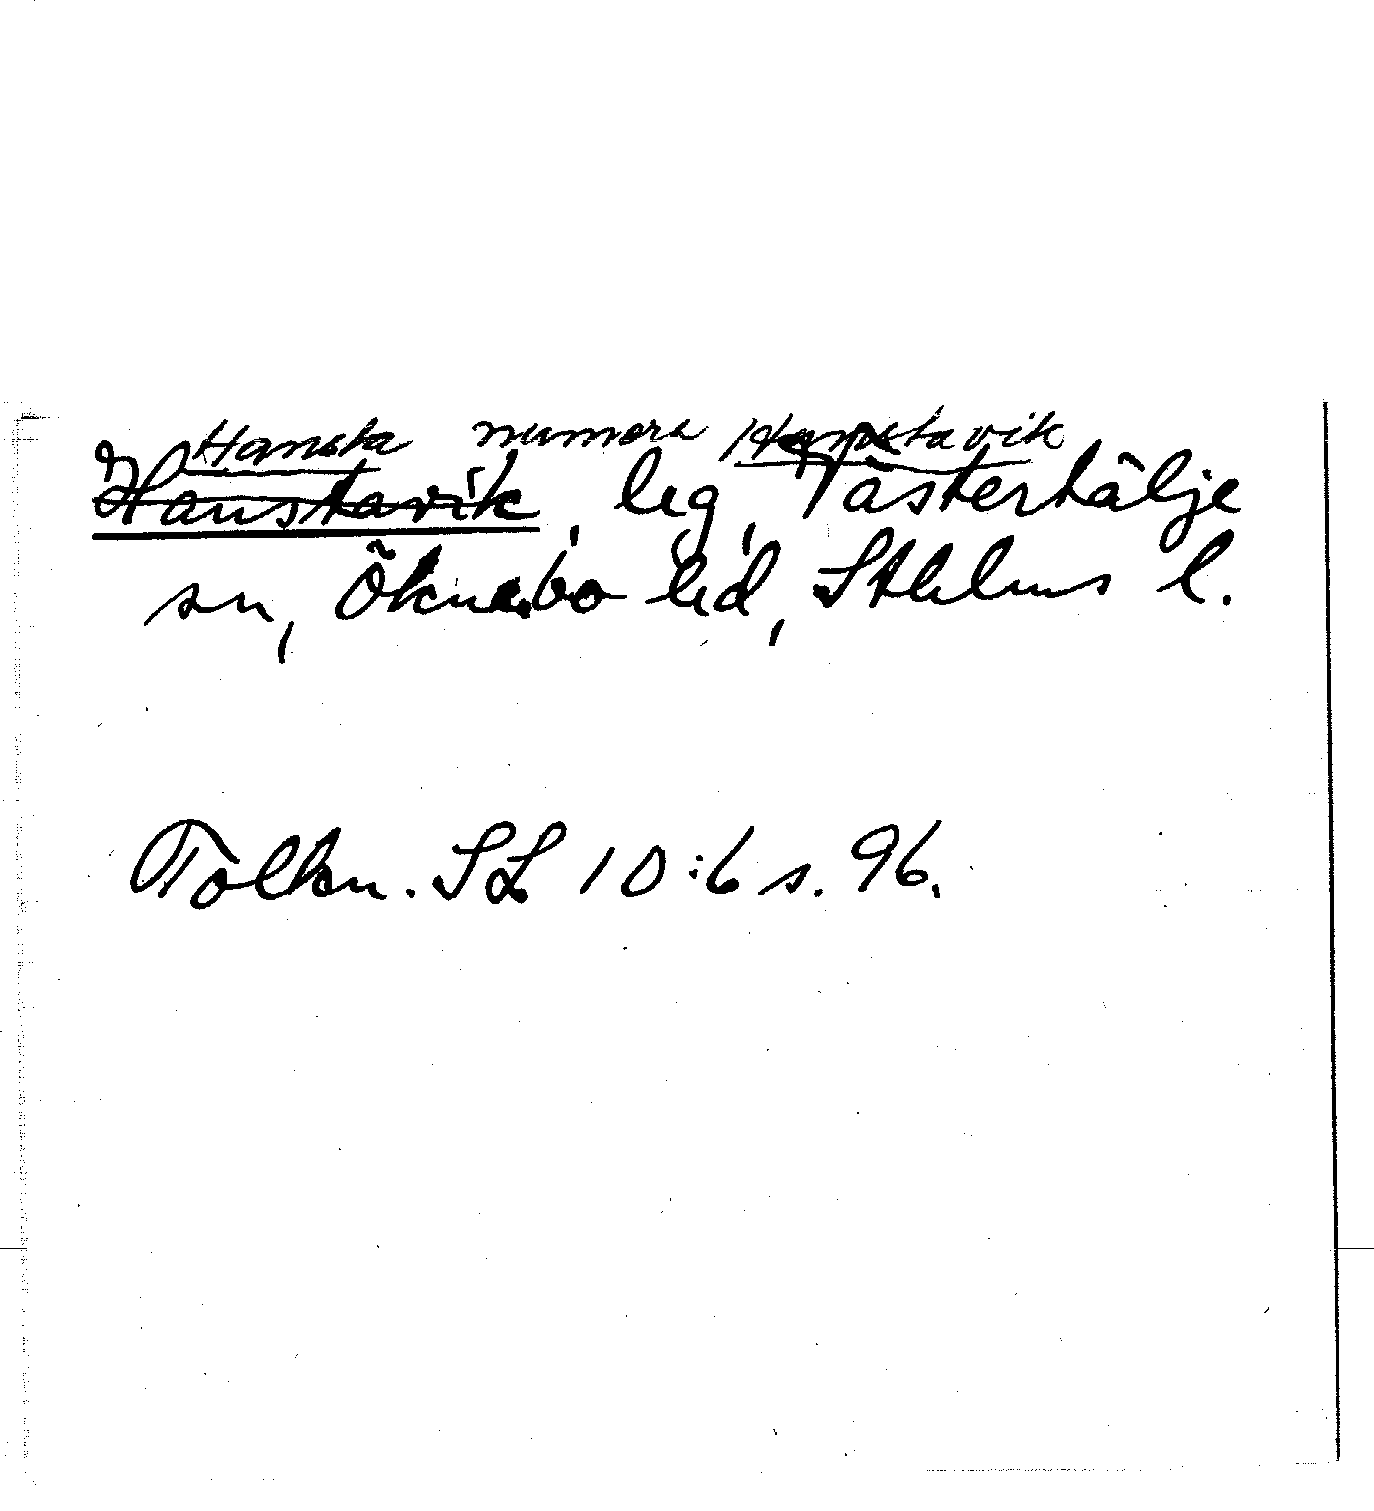 Hansta numera Hanstavik
Hanstavik, hg, Västertälje
sn, Öknebo hd, Sthlms l.
Tolkn. SL 10:6 s. 96.